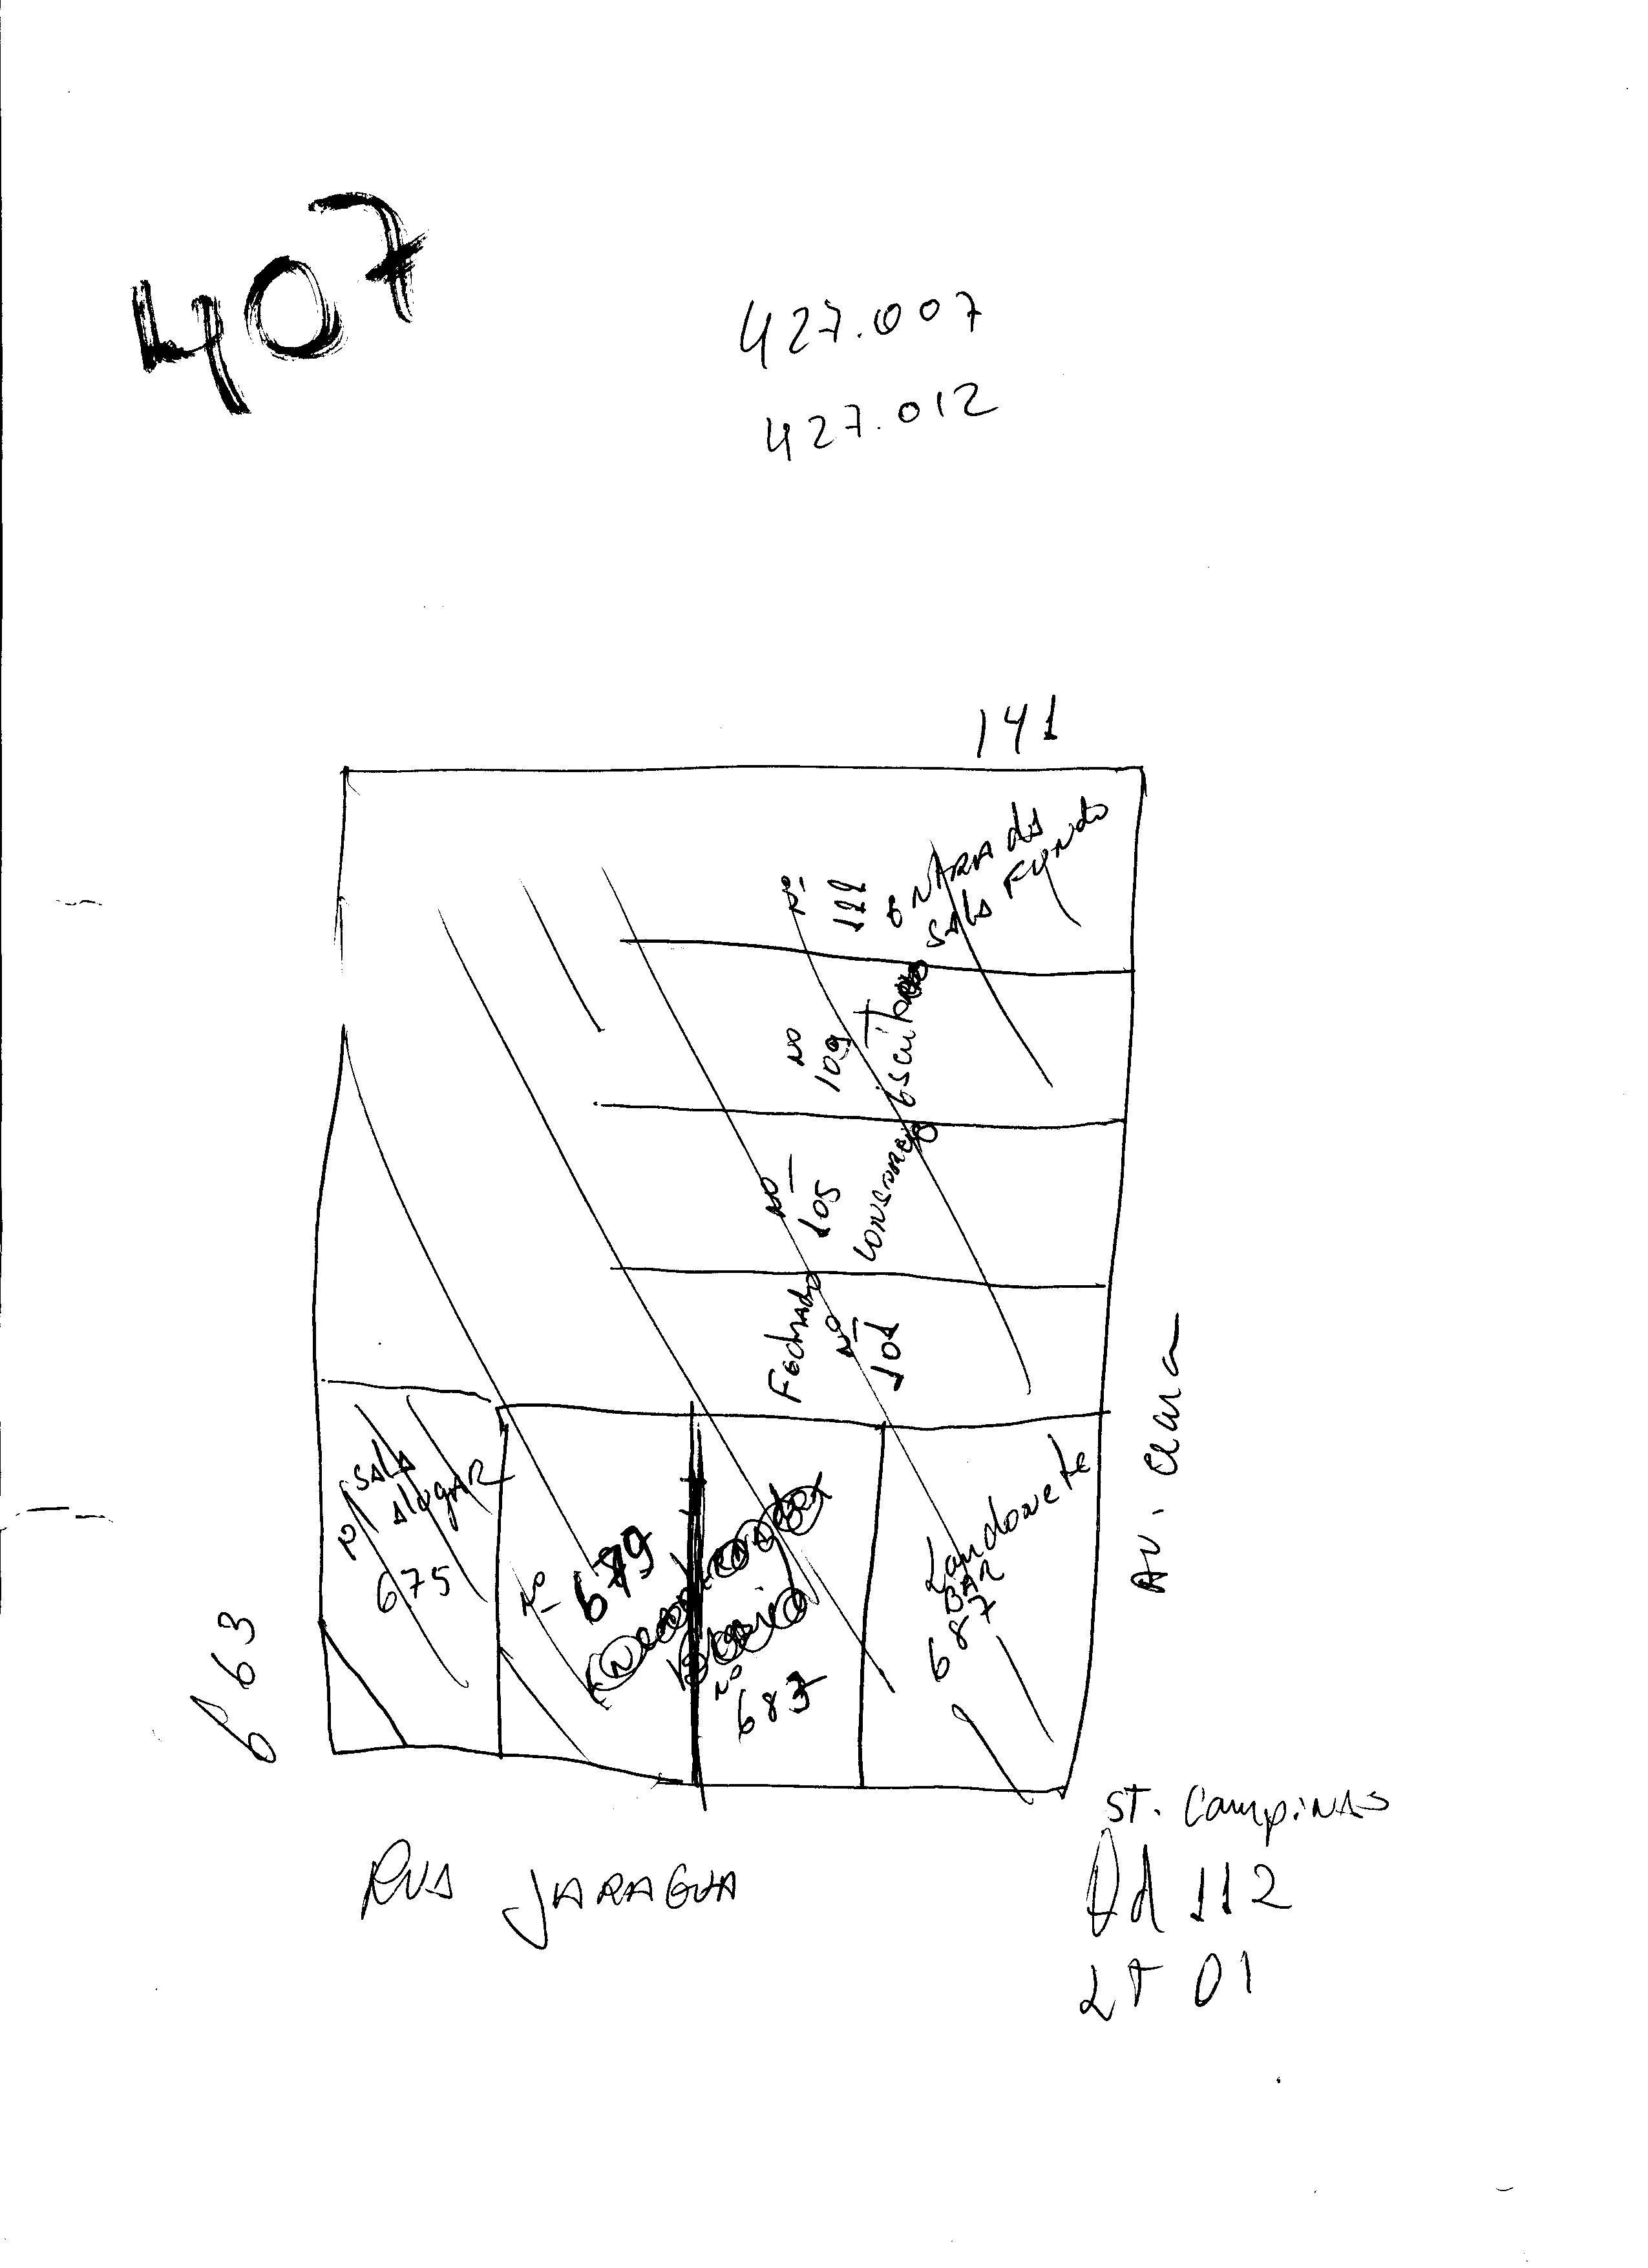 407
427.007
427.012
141
Nº
111
ENTRADA
SALA FUNDO
Nº
109
Nº
105
CONSORCIO
Fechado
Nº
101
AV. Clara
SALA
AlugAR
Nº
675
Nº 679
Nº
683
Landonete
BAR
687
663
RUA JARAGUA
ST. CAMPINAS
Qd 112
LT 01